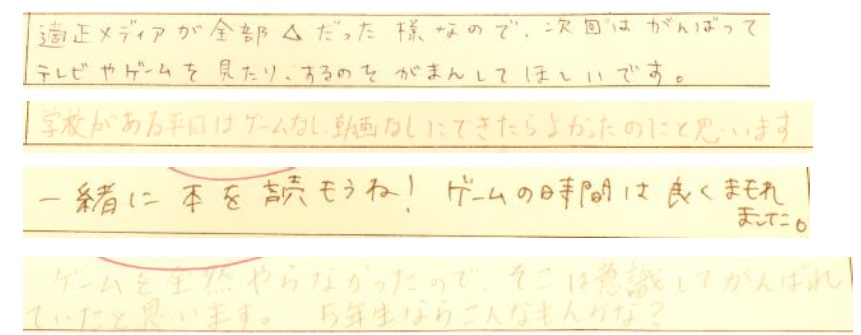 適正メディアが全部△だった様なので、次回はがんばって
テレビやゲームを見たり、するのをがまんしてほしいです。
学校がある平日はゲームなし、動画なしにできたらよかったのにと思います
一緒に本を読もうね!ゲームの時間は良くまもれ
ました。
ゲームを全然やらなかったので、そこは意識してがんばれ
ていたと思います。5年生ならこんなもんかな?